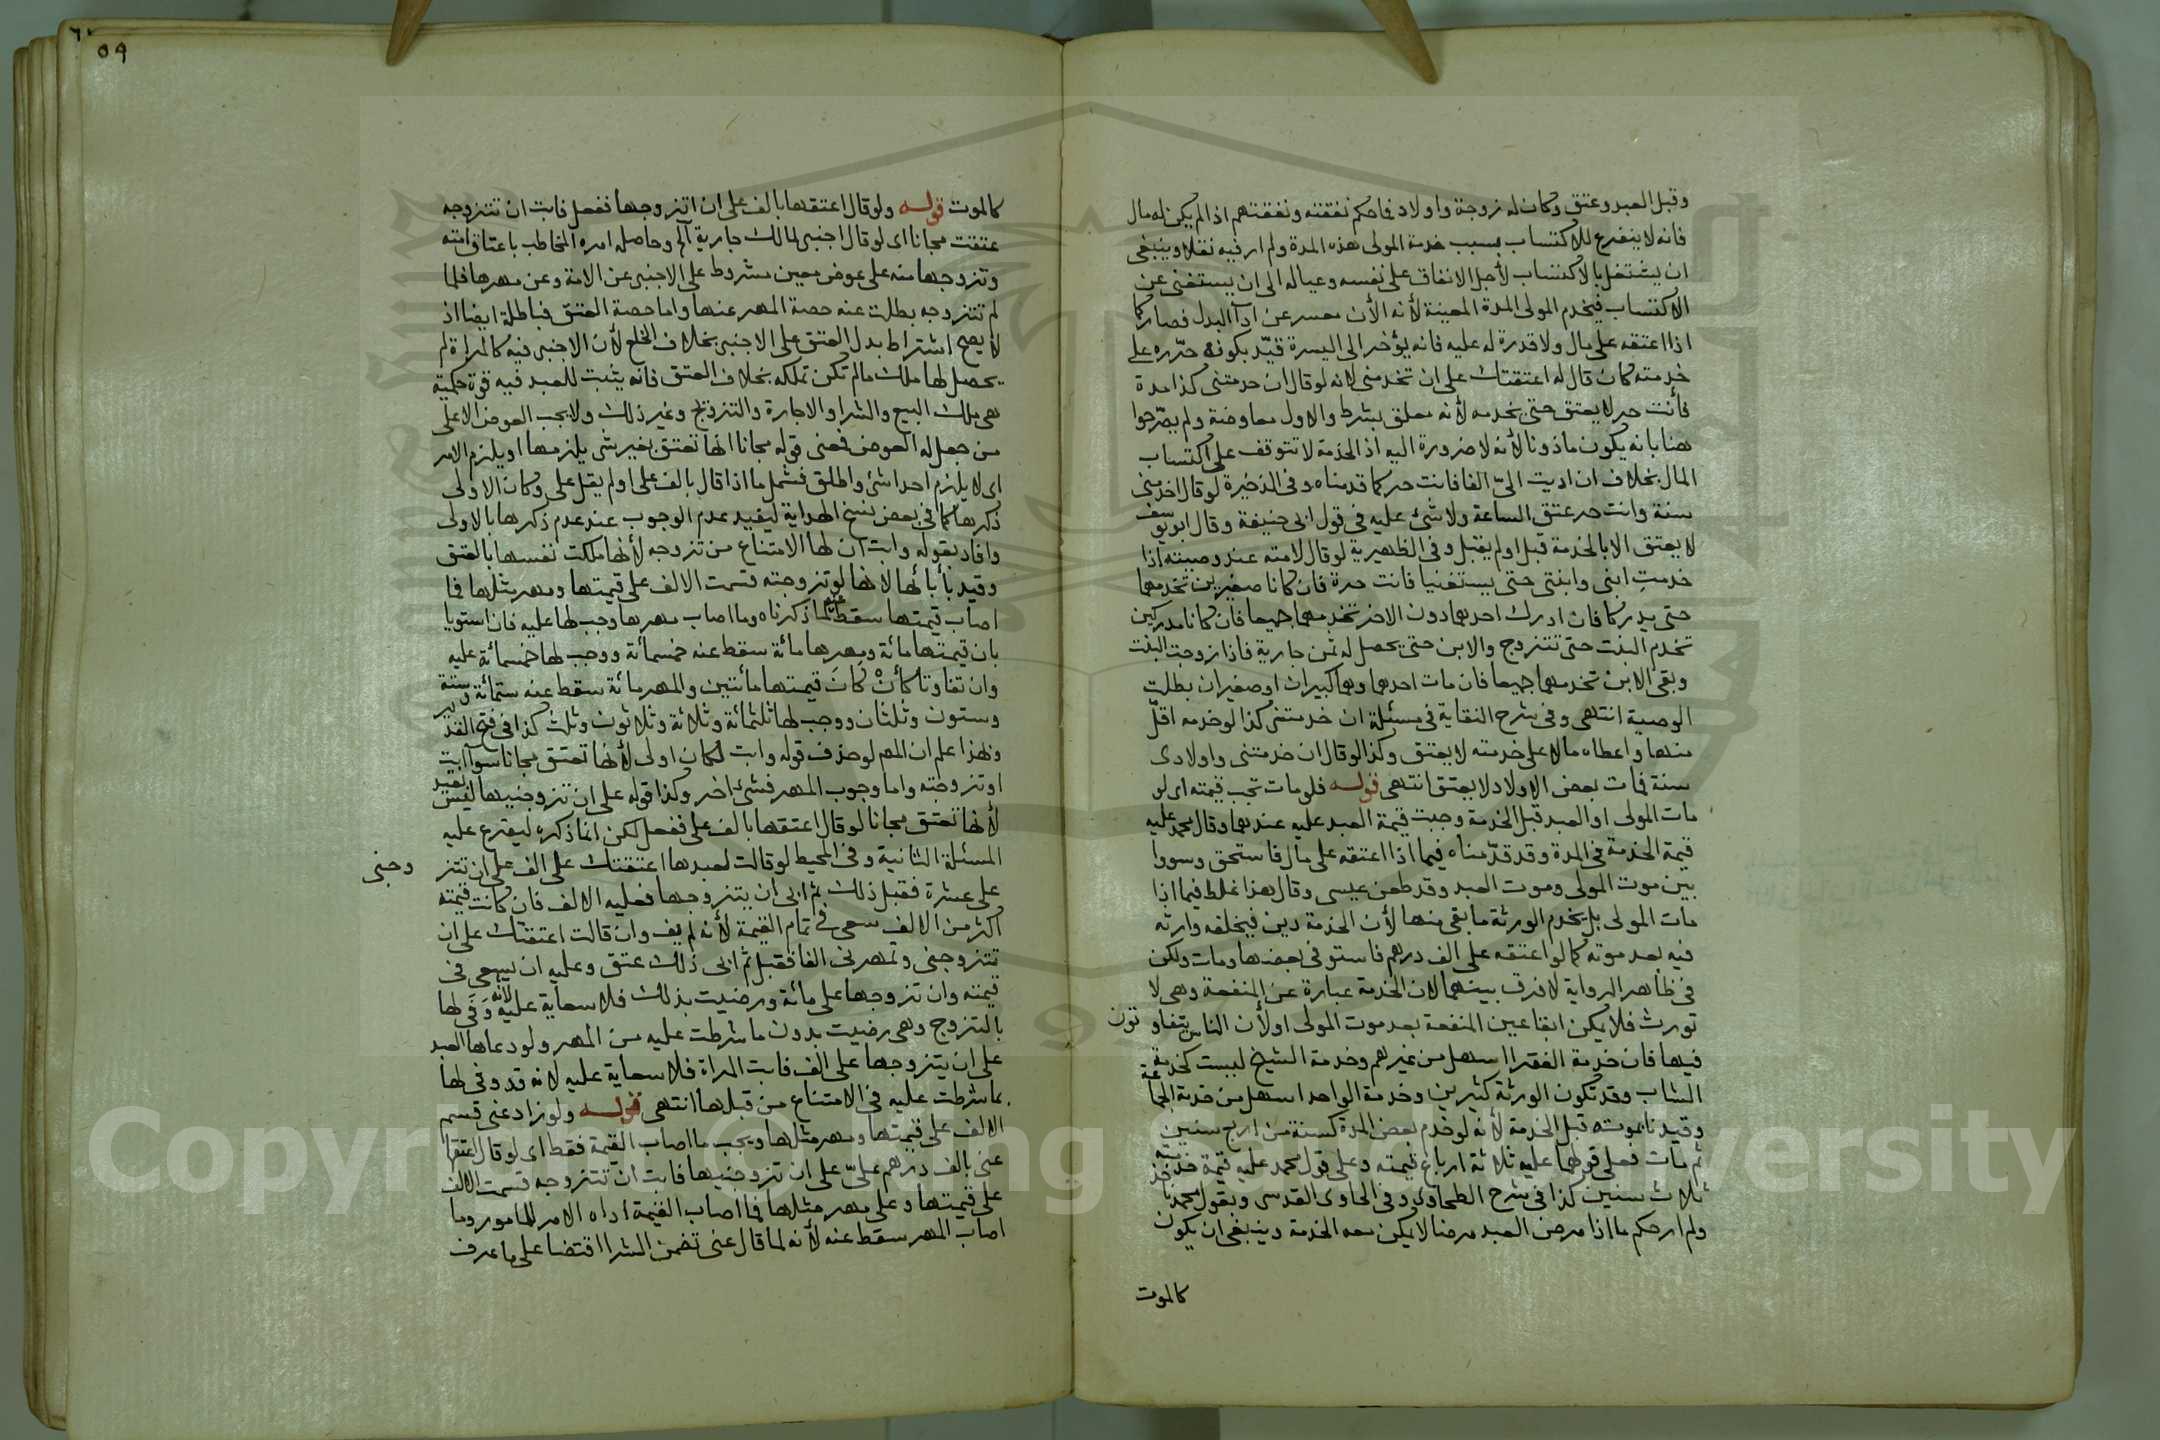 وقبل العبد وعتق وكان له زوجة واولاد فما حكم نفقته ونفقتهم اذا لم يكن له مال
فانه لا يتفرغ للاكتساب بسبب خدمة المولى هذه المدة ولم ار فيه نقلا وينبغى
ان يشتغل بالاكتساب لأجل الانفاق على نفسه وعياله الى ان يستغنى عن
الاكتساب فيخدم المولى المدة المعينة لأنه الأن معسر عن ادآ البدل فصار كما
اذا اعتقه على مال ولا قدرة له عليه فانه يؤخر الى اليسرة قيّد بكونه حرّره على
خدمته كان قال له اعتقتك على ان تخدمنى لانه لو قال ان خدمتنى كذا مدة
فأنت حر لا يعتق حتى يخدمه لأنه معلق بشرط والاول معاوضة ولم يصرّحوا
هنا بانه يكون ماذونا لأنه لا ضرورة اليه اذ الخدمة لا تتوقف على اكتساب
المال بخلاف ان اديت الىّ الفا فانت حر كما قدمناه وفى الذخيرة لو قال اخدمنى
سنة وانت حر عتق الساعة ولا شئ عليه فى قول ابى حنيفة وقال ابو يوسف
لا يعتق الا بالخدمة قبل او لم يقبل وفى الظهيرية لو قال لامته عند وصيته اذا
خدمتِ ابنى وابنتى حتى يستغنيا فانت حرة فان كانا صغيرين تخدمهما
حتى يدركا فان ادرك احدهما دون الاخر تخدمهما جميعا فان كانا مدركين
تخدم البنت حتى تتزوج والابن حتى يحصل له ثمن جارية فاذا زوجت البنت
وبقى الابن تخدمهما جميعا فان مات احدهما وهما كبيران او صغيران بطلت
الوصية انتهى وفى شرح النقاية فى مسئلة ان خدمتنى كذا لو خدمه اقلّ
منها واعطاه مالا على خدمته لا يعتق وكذا لو قال ان خدمتنى واولادى
سنة فمات بعض الاولاد لا يعتق انتهى قوله فلو مات تجب قيمته اى لو
مات المولى او العبد قبل الخدمة وجبت قيمة العبد عليه عندهما وقال محمد عليه
قيمة الخدمة فى المدة وقد قدّمناه فيما اذا اعتقه على مال فاستحق وسووا
بين موت المولى وموت العبد وقد طعن عيسى وقال هذا غلط فيما اذا
مات المولى بل يخدم الورثة ما بقى منها لأن الخدمة دين فيخلفه وارثه
فيه بعد موته كما لو اعتقه على الف درهم فاستوفى بعضها ومات ولكن
فى ظاهر الرواية لا فرق بينهما لان الخدمة عبارة عن المنفعة وهى لا
تورث فلا يمكن ابقا عين المنفعة بعد موت المولى او لأن الناس يتفاوتون
فيها فان خدمة الفقرا اسهل من غيرهم وخدمة الشيخ ليست كخدمة
الشاب وقد تكون الورثة كثيرين وخدمة الواحد اسهل من خدمة الجماعة
وقيدنا بموته قبل الخدمة لأنه لو خدم بعض المدة كسنة من اربع سنين
ثم مات فعلى قولهما عليه ثلاثة ارباع قيمته وعلى قول محمد عليه قيمة خدمته
ثلاث سنين كذا فى شرح الطحاوى وفى الحاوى القدسى وبقول محمد ناخذ
ولم ار حكم ما اذا مرض العبد مرضا لا يمكن معه الخدمة وينبغى ان يكون
كالموت
٥٩
كالموت قوله ولو قال اعتقها بالف على ان اتزوجها ففعل فابت ان تتزوجه
عتقت مجانا اى لو قال اجنبى لمالك جارية الخ وحاصله امره المخاطب باعتاق امته
وتزوجها منه على عوض معين مشروط على الاجنبى عن الامة وعن مهرها فلما
لم تتزوجه بطلت عنه حصة المهر عنها واما حصة العتق فباطلة ايضا اذ
لا يصح اشتراط بدل العتق على الاجنبى بخلاف الخلع لأن الاجنبى فيه كالمراة لم
يحصل لها ملك ما لم تكن تملكه بخلاف العتق فانه يثبت للعبد فيه قوة حكمية
هى ملك البيع والشرا والاجارة والتزويج وغير ذلك ولا يجب العوض الا على
من جعل له العوض فمعنى قوله مجانا انها تعتق بغير شى يلزمها او يلزم الامر
اى لا يلزم احدا شئ واطلق فشمل ما اذا قال بالف على او لم يقل على وكان الاولى
ذكرها كما فى بعض نسخ الهداية ليفيد عدم الوجوب عند عدم ذكرها بالاولى
وافاد بقوله وابت ان لها الامتناع من تزوجه لأنها ملكت نفسها بالعتق
وقيد بأبائها لانها لو تزوجته قسمت الالف على قيمتها ومهر مثلها فما
اصاب قيمتها سقط عنه لما ذكرناه وما اصاب مهرها وجب لها عليه فان استويا
بان قيمتها مائة ومهرها مائة سقط عنه خمسمائة ووجب لها خمسمائة عليه
وان تفاوتا كأنْ كانَ قيمتها مأئتين والمهر مائة سقط عنه ستمائة وستة
وستون وثلثان ووجب لها ثلثمائة وثلاثة وثلاثون وثلث كذا فى فتح القدير
وبهذا علم ان المص لو حذف قوله وابت لكان اولى لأنها تعتق مجانا سوآ ابت
او تزوجته واما وجوب المهر فشئ اخر وكذا قوله على ان تزوجنيها ليس بقيد
لأنها تعتق مجانا لو قال اعتقها بالف على ففعل لكن انما ذكره ليفرع عليه
المسئلة الثانية وفى المحيط لو قالت لعبدها اعتقتك على الف على ان تتزوجنى
على عشرة فقبل ذلك ثم ابى ان يتزوجها فعليه الالف فان كانت قيمته
اكثر من الالف سعى فى تمام القيمة لأنه لم يف وان قالت اعتقتك على ان
تتزوجنى وتمهرنى الفا فقبل ثم ابى ذلك عتق وعليه ان يسعى فى
قيمته وان تزوجها على مائة ورضيت بذلك فلا سعاية عليه لأنه وَفَى لها
بالتزوج وهى رضيت بدون ما شرطت عليه من المهر ولو دعاها العبد
على ان يتزوجها على الف فابت المراة فلا سعاية عليه لانه قد وفى لها
بما شرطت عليه فى الامتناع من قبلها انتهى قوله ولو زاد عنى قسم
الالف على قيمتها ومهر مثلها ويجب ما اصاب القيمة فقط اى لو قال اعتقها
عنى بالف درهم علىّ على ان تزوجنيها فابت ان تتزوجه قسمت الالف
على قيمتها وعلى مهر مثلها فما اصاب القيمة أداه الامر للمامور وما
اصاب المهر سقط عنه لأنه لما قال عنى تضمن الشرا اقتضا على ما عرف
Copyright © King Saud University